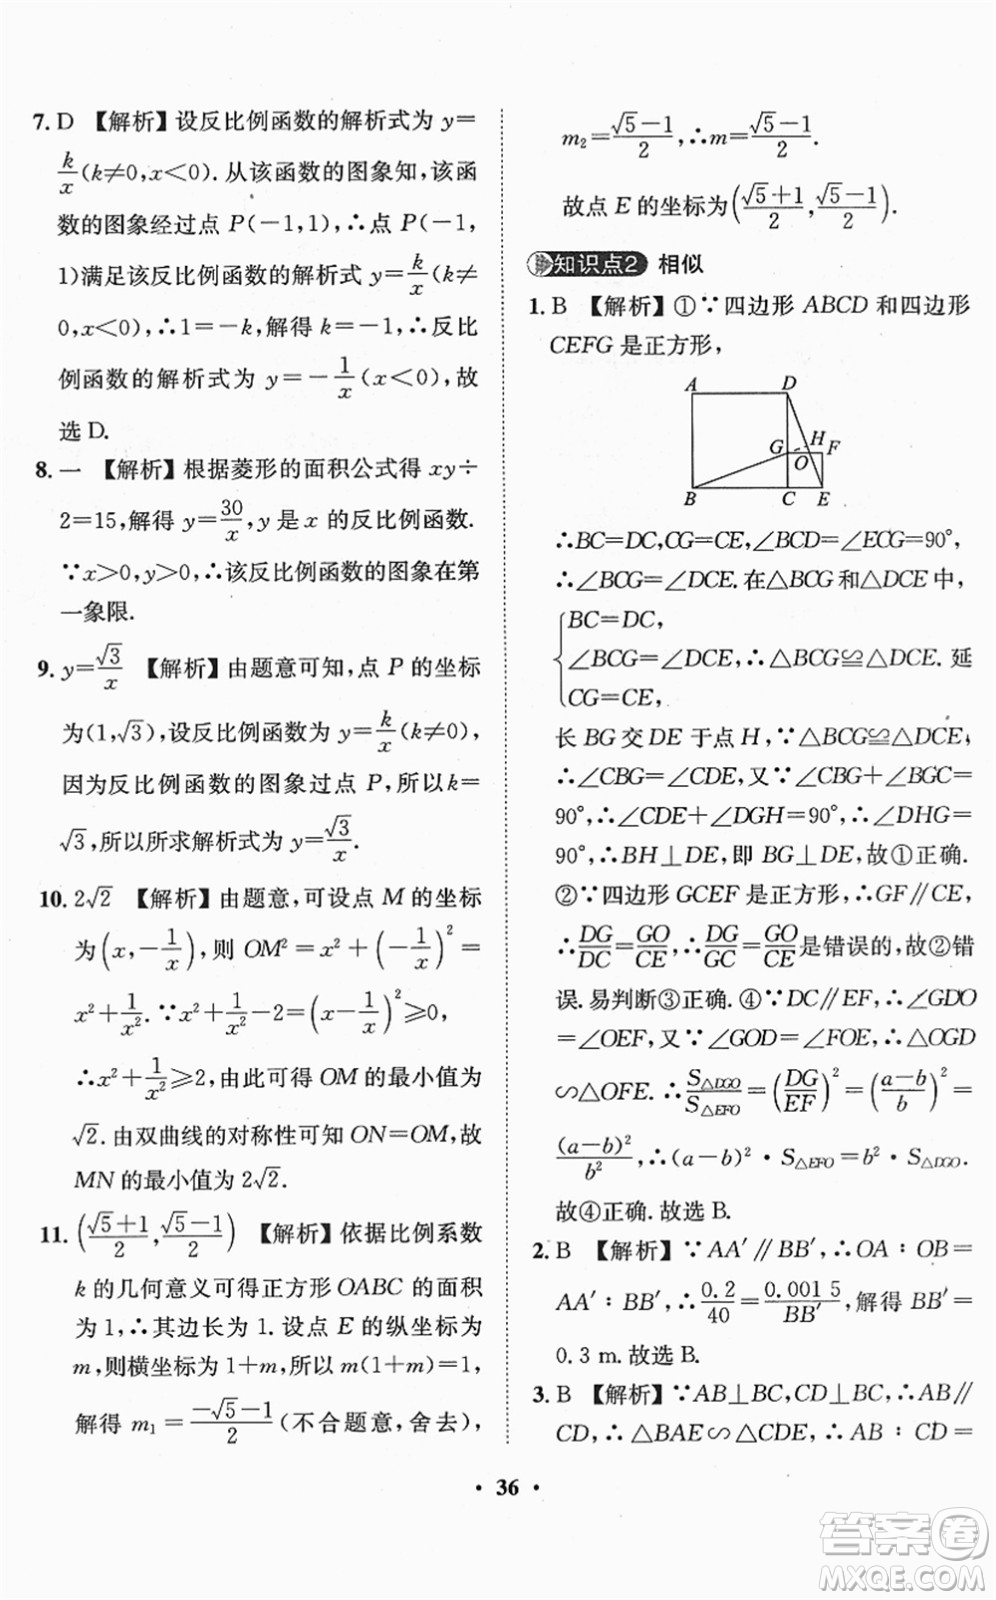 7. D 【解析】设反比例函数的解析式为 y=
k/x(k≠0,x<0). 从该函数的图象知,该函
数的图象经过点 P(-1,1),∴点 P(-1,
1)满足该反比例函数的解析式 y=k/x(k≠
0,x<0),∴1=-k,解得 k=-1,∴反比
例函数的解析式为 y=-1/x(x<0),故
选 D.
8. 一 【解析】根据菱形的面积公式得 xy÷
2=15,解得 y=30/x,y 是 x 的反比例函数.
∵x>0,y>0,∴该反比例函数的图象在第
一象限.
9. y=√3/x 【解析】由题意可知,点 P 的坐标
为(1,√3),设反比例函数为 y=k/x(k≠0),
因为反比例函数的图象过点 P,所以k=
√3,所以所求解析式为 y=√3/x.
10. 2√2 【解析】由题意,可设点 M 的坐标
为(x,-1/x),则 OM²=x²+(-1/x)²=
x²+1/x².∵x²+1/x²-2=(x-1/x)²≥0,
∴x²+1/x²≥2,由此可得 OM 的最小值为
√2. 由双曲线的对称性可知 ON=OM,故
MN 的最小值为 2√2.
11. ((√5+1)/2,(√5-1)/2) 【解析】依据比例系数
k 的几何意义可得正方形 OABC 的面积
为 1,∴其边长为 1. 设点 E 的纵坐标为
m,则横坐标为 1+m,所以 m(1+m)=1,
解得 m₁=(-√5-1)/2(不合题意,舍去),
m₂=(√5-1)/2,∴m=(√5-1)/2.
故点 E 的坐标为((√5+1)/2,(√5-1)/2).
知识点2 相似
1. B 【解析】①∵四边形 ABCD 和四边形
CEFG 是正方形,
A D
G H F
O
B C E
∴BC=DC,CG=CE,∠BCD=∠ECG=90°,
∴∠BCG=∠DCE. 在△BCG 和△DCE 中,
BC=DC,
∠BCG=∠DCE,∴△BCG≌△DCE. 延
CG=CE,
长 BG 交 DE 于点 H,∵△BCG≌△DCE,
∴∠CBG=∠CDE,又∵∠CBG+∠BGC=
90°,∴∠CDE+∠DGH=90°,∴∠DHG=
90°,∴BH⊥DE,即 BG⊥DE,故①正确.
②∵四边形 GCEF 是正方形,∴GF∥CE,
∴DG/DC=GO/CE,∴DG/GC=GO/CE是错误的,故②错
误. 易判断③正确. ④∵DC∥EF,∴∠GDO
=∠OEF,又∵∠GOD=∠FOE,∴△OGD
∽△OFE.∴S△DGO/S△EFO=(DG/EF)²=((a-b)/b)²=
(a-b)²/b²,∴(a-b)²·S△EFO=b²·S△DGO.
故④正确. 故选 B.
2. B 【解析】∵AA′∥BB′,∴OA∶OB=
AA′∶BB′,∴0.2/40=0.001 5/BB′,解得 BB′=
0.3 m. 故选 B.
3. B 【解析】∵AB⊥BC,CD⊥BC,∴AB∥
CD,∴△BAE∽△CDE,∴AB∶CD=
· 36 ·
答案圈
MXQE.COM